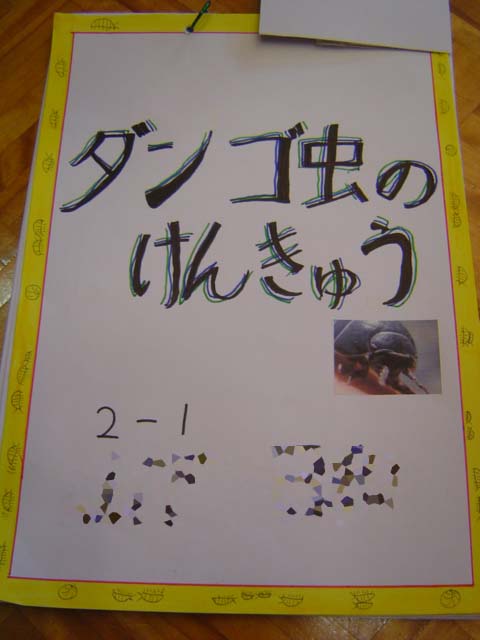 ダンゴ虫の
けんきゅう
2-1